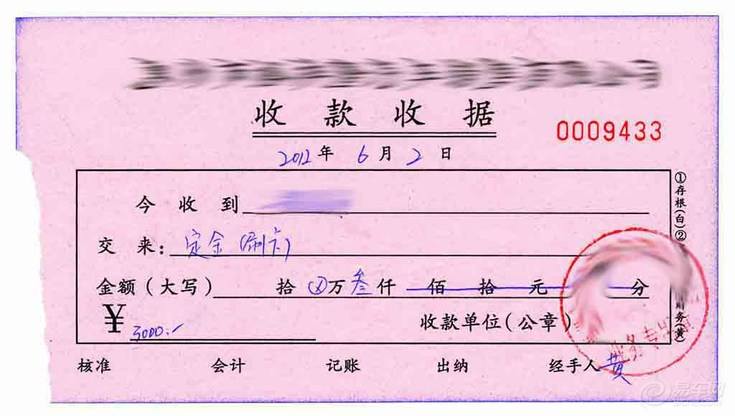 收款收据
0009433
2012年6月2日
今收到
交来：定金(刷卡)
金额(大写) 拾 ⊗万叁仟 佰 拾 元 分
¥ 3000.- 收款单位(公章)
核准 会计 记账 出纳 经手人 黄
①存根(白)②
财务(黄)
业务专用
易车网